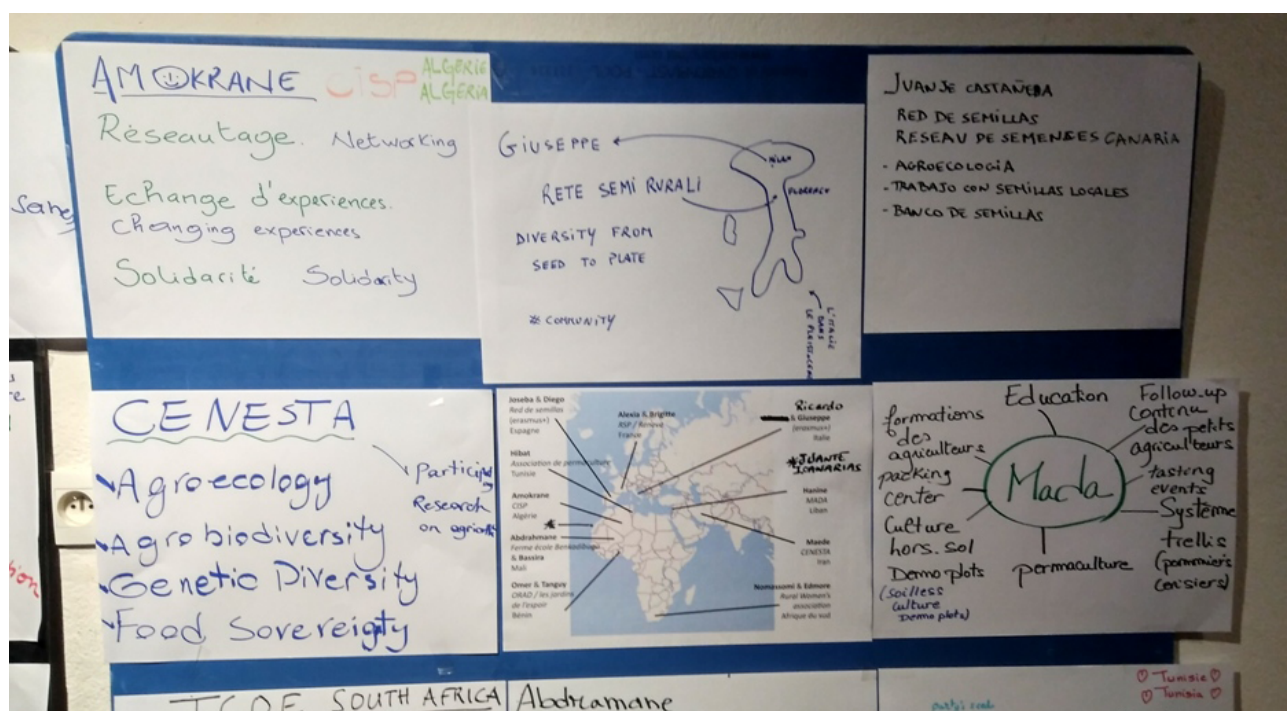 AMOKRANE CISP ALGERIE
ALGERIA
Réseautage. Networking
Echange d'experiences.
Changing experiences
Solidarité Solidarity
GIUSEPPE
MILAN
FLORENCE
RETE SEMI RURALI
DIVERSITY FROM
SEED TO PLATE
* COMMUNITY
L'ITALIE
DANS
LE PLEISTOCENE
JUANJE CASTAÑEDA
RED DE SEMILLAS
RESEAU DE SEMENSES CANARIA
- AGROECOLOGIA
- TRABAJO CON SEMILLAS LOCALES
- BANCO DE SEMILLAS
CENESTA
Agroecology
Agrobiodiversity
Genetic Diversity
Food Sovereigty
Research
Joseba & Diego
Red de semillas
(erasmus+)
Espagne
Hibat
Association de permaculture
Tunisie
Amokrane
CISP
Algérie
Abdrahmane
& Bassira
Mali
Omer & Tanguy
ORAD / les jardins
de l'espoir
Bénin
Alexia & Brigitte
RSP / Renova
France
Ricardo
& Giuseppe
(erasmus+)
Italie
Hanine
MADA
Liban
Maede
CENESTA
Iran
Nomassomi & Edmore
Rural Women's
association
Afrique du sud
Mada
Education
Follow-up
contenu
des petits
agriculteurs
tasteng
events
Système
trellis
(pommiers
cerisiers)
permaculture
formations
des
agriculteurs
packing
center
Culture
hors-sol
Demo plots
(Soilless
culture
Demo plots)
SOUTH AFRICA
Abdramane
♡ Tunisie ♡
♡ Tunisia ♡